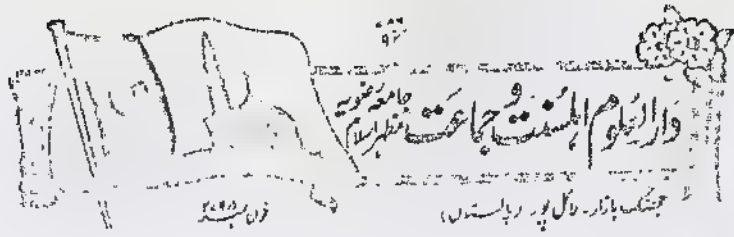 ۷۸۶
۹۲
دارالعلوم اہلسنت و جماعت جامعہ رضویہ مظہر اسلام
جھنگ بازار۔ لائل پور (پاکستان) فون نمبر